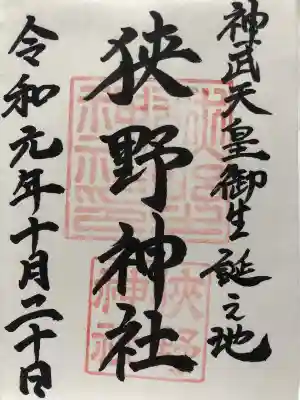 神武天皇御生誕之地
狭野神社
令和元年十月二十日
狭野神社